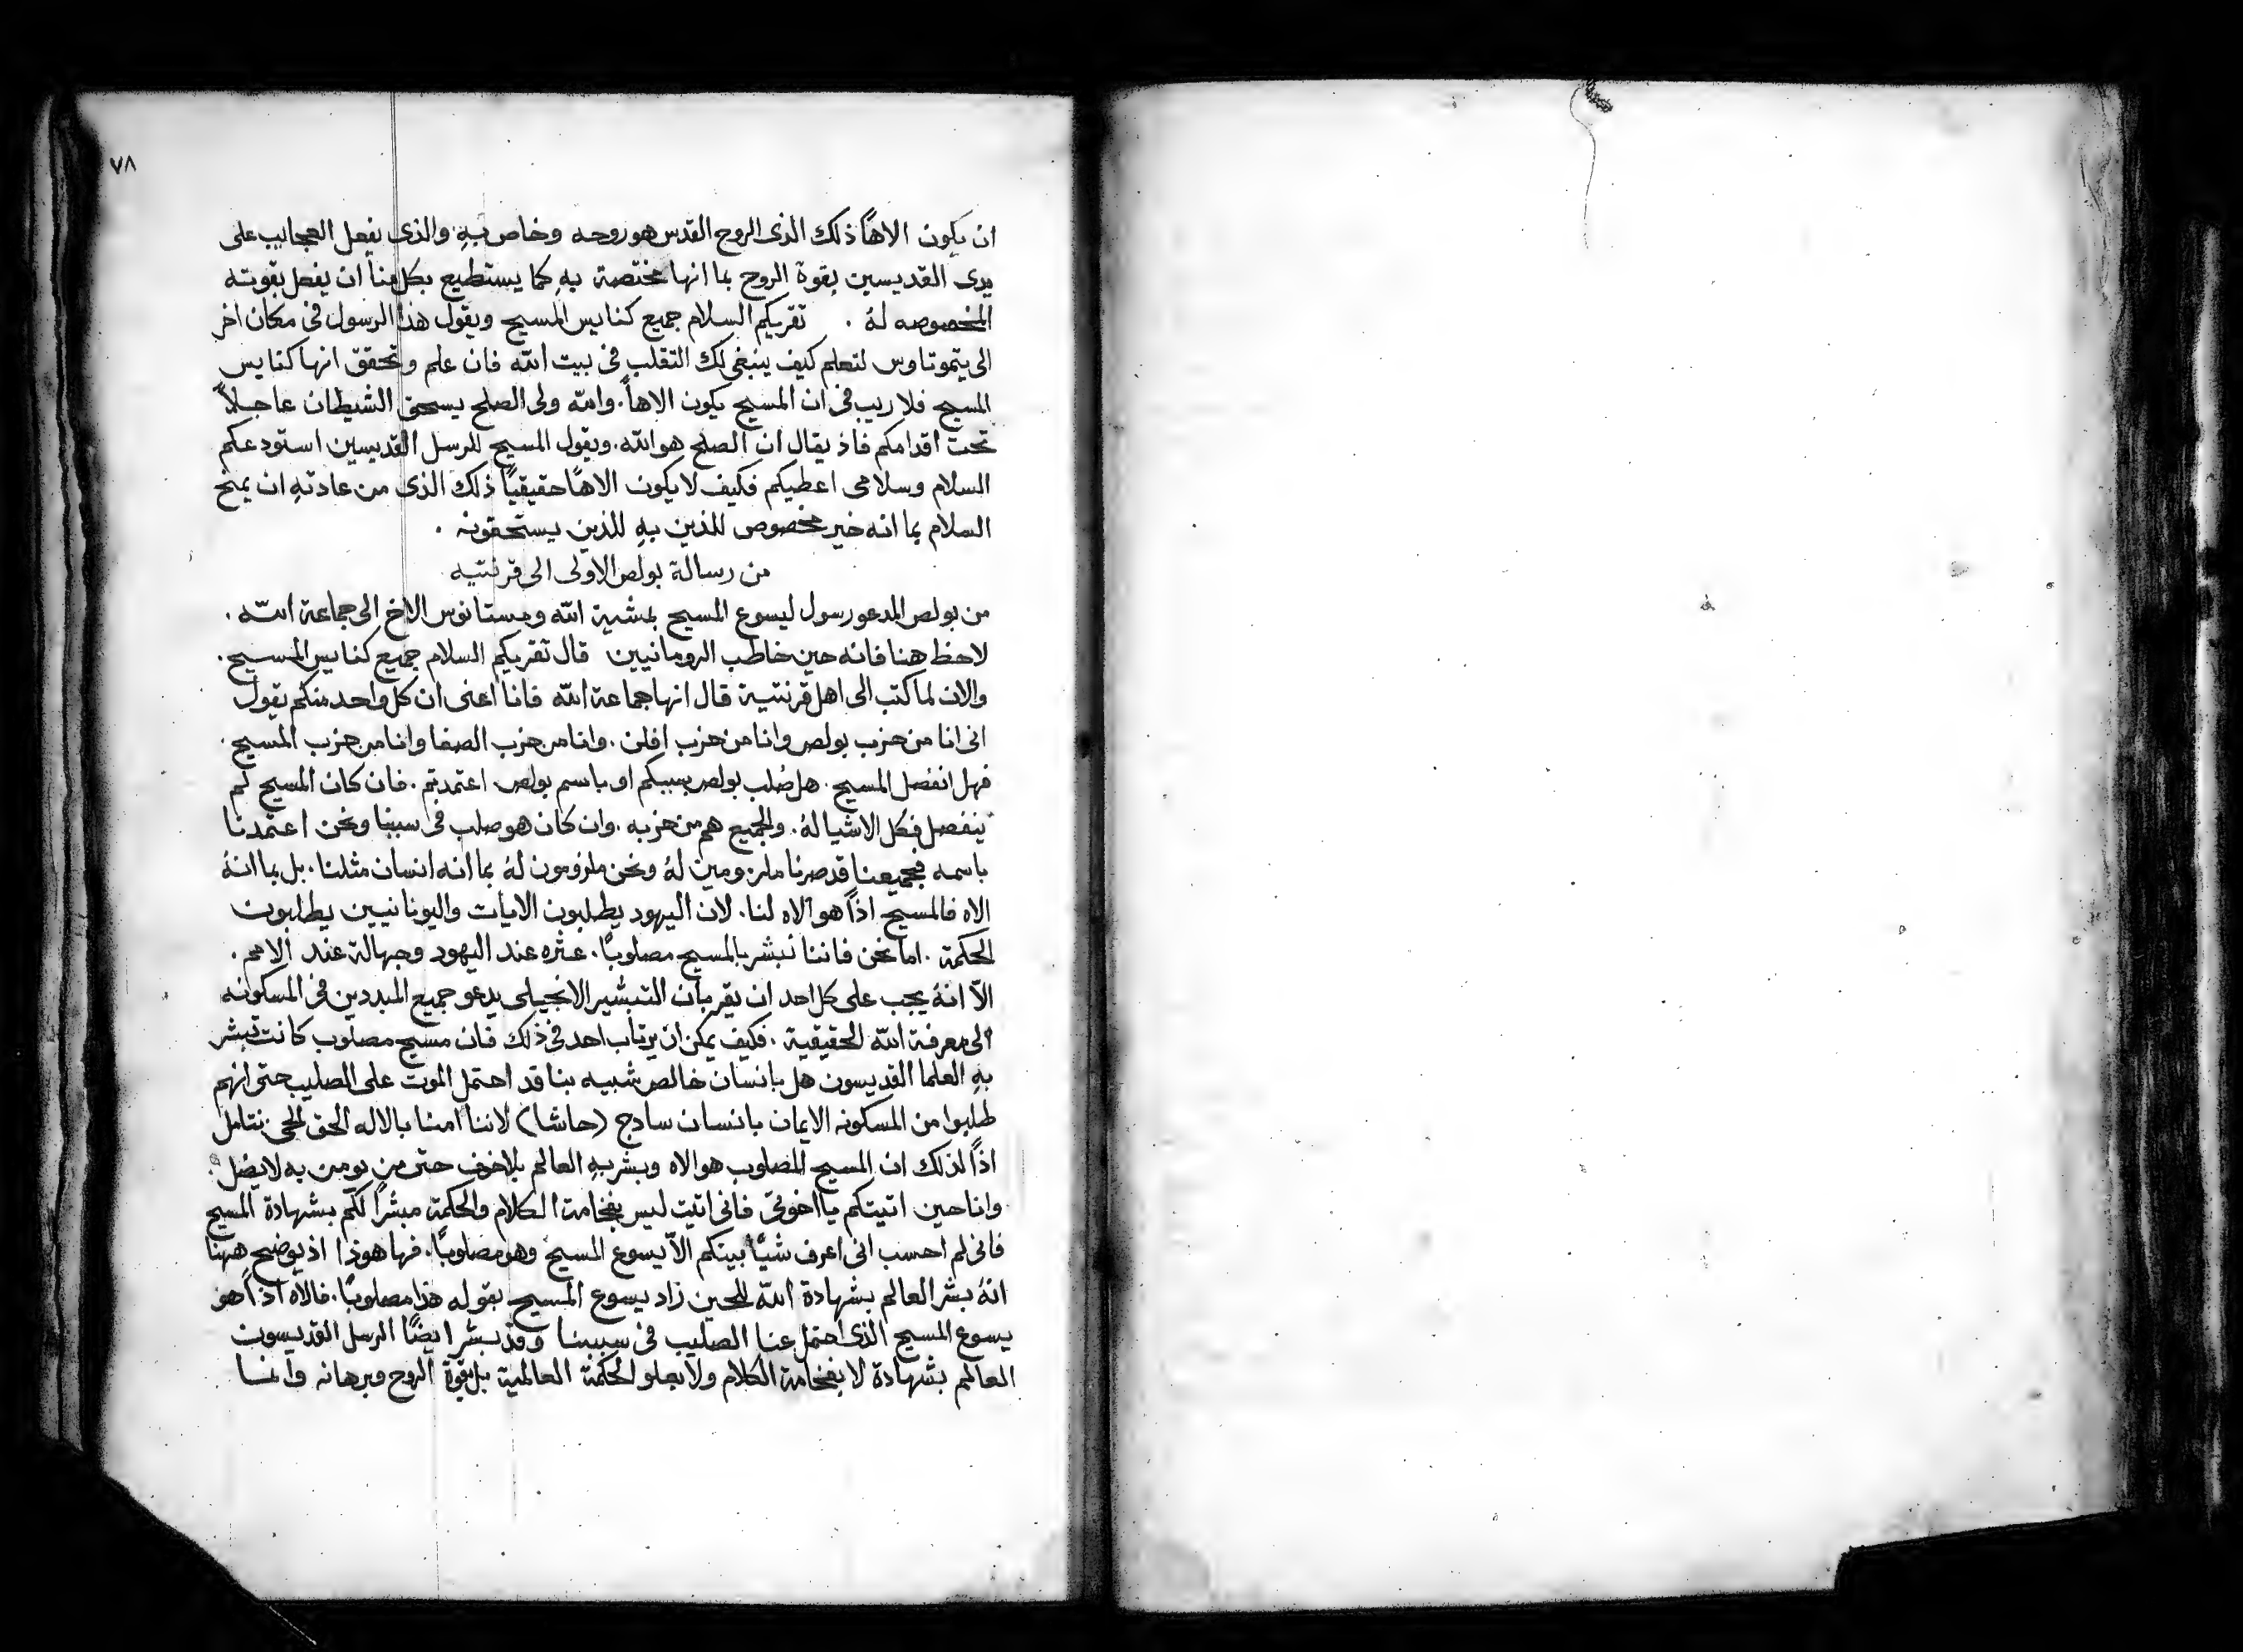 ٧٨
ان يكون الاهاً ذلك الذى الروح القدس هو روحه وخاص بهِ والذى يفعل العجايب على
يدى القديسين بقوة الروح بما انها مختصة بهِ كما يستطيع بكل هنا ان يفعل بقوته
المخصوصه لهُ . تقريكم السلام جميع كنايس المسيح ويقول هذا الرسول فى مكان اخر
الى يتموتاوس لتعلم كيف ينبغى لك التقلب فى بيت الله فان علم وتحقق انها كنايس
المسيح فلا ريب فى ان المسيح يكون الاهاً. والله ولى الصلح يسحق الشيطان عاجلاً
تحت اقدامكم فاذ يقال ان الصلح هو الله. ويقول المسيح للرسل القديسين استودعكم
السلام وسلامى اعطيكم فكيف لا يكون الاهًا حقيقيًا ذلك الذى من عادتهِ ان يمنح
السلام بما انه خير مخصوص للذين بهِ للذين يستحقونه .
من رسالة بولص الاولى الى قرنتيه
من بولص المدعو رسول ليسوع المسيح بمشية الله وسستانوس الاخ الى جماعة الله .
لاحظ هنا فانه حين خاطب الرومانيين قال تقريكم السلام جميع كنايس المسيح .
والان لما كتب الى اهل قرنتية قال انها جماعة الله فانا اعنى ان كل واحد منكم يقول
انى انا من حزب بولص وانا من حزب افلن . وانا من حزب الصفا وانا من حزب المسيح .
فهل انفصل المسيح . هل صُلب بولص بسببكم او باسم بولص اعتمدتم . فان كان المسيح لم
ينفصل فكل الاشيا لهُ . والجميع هم من حزبه . وان كان هو صلب فى سببنا ونحن اعتمدنا
باسمه فجميعنا قد صرنا ملزومين لهُ ونحن ملزومون لهُ بما انه انسان مثلنا . بل بما انهُ
الاه فالمسيح اذاً هو الاه لنا . لان اليهود يطلبون الايات واليونانيين يطلبون
الحكمة . اما نحن فاننا نبشر بالمسيح مصلوبًا . عثره عند اليهود وجهالة عند الامم .
الاّ انهُ يجب على كل احد ان يقر بان التبشير الانجيلى يدعو جميع المبددين فى المسكونه
الى معرفة الله الحقيقية . فكيف يمكن ان يرتاب احد فى ذلك فان مسيح مصلوب كانت تبشر
بهِ العلما القديسون هل بانسان خالص شبيه بنا قد احتمل الموت على الصليب حتى انهم
طلبوا من المسكونه الايمان بانسان سادج (حاشا) لاننا امنا بالاله الحق نتامل
اذاً لذلك ان المسيح المصلوب هو الاه وبشر بهِ العالم بلا خوف حتى من يومن به لا يضل .
وانا حين اتيتكم يا اخوتى فانى اتيت ليس بفخامة الكلام والحكمة مبشراً لكم بشهادة المسيح
فانى لم احسب انى اعرف شيًا بينكم الاّ يسوع المسيح وهو مصلوبًا . فها هوذا اذ يوضح ههنا
انهُ بشر العالم بشهادة الله للحين زاد يسوع المسيح بقوله هذا مصلوبًا . فالاه اذاً هو
يسوع المسيح الذى احتمل عنا الصليب فى سببنا وقد بشر ايضًا الرسل القديسون
العالم بشهادة لا بفخامة الكلام ولا بعلو الحكمة العالمية بل بقوة الروح وبرهانه وامنا